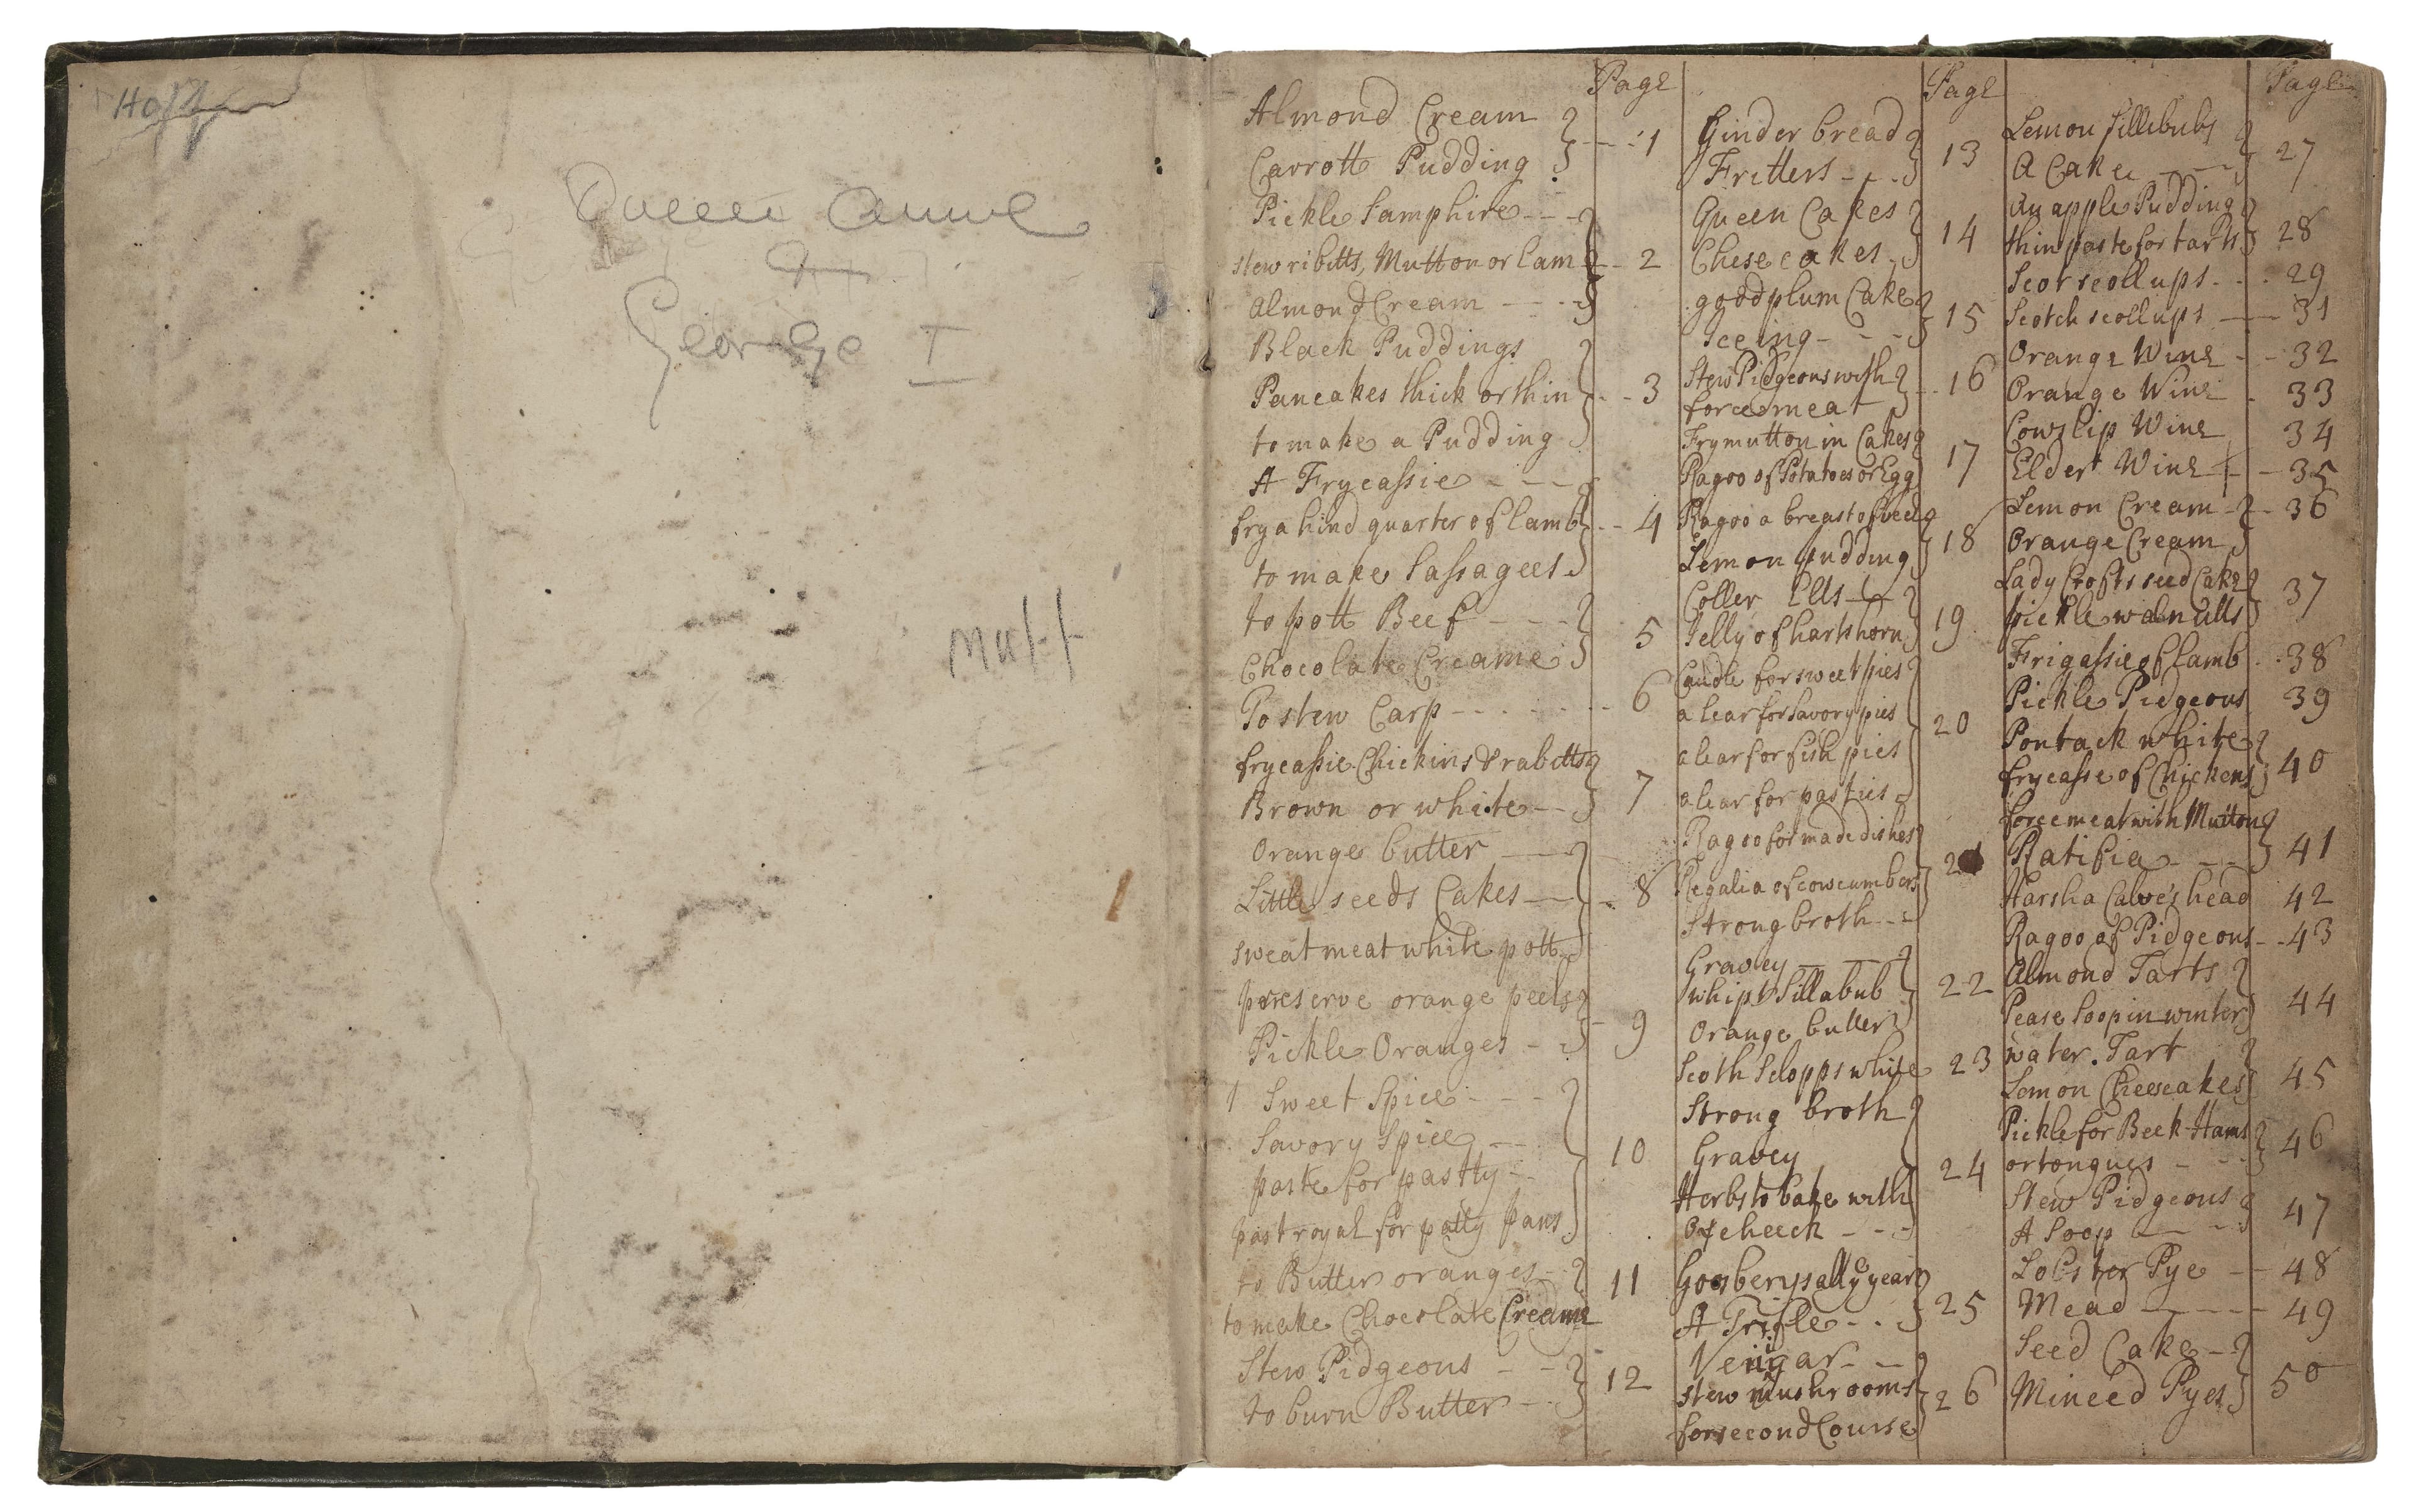 Queen Anne
George I
Mutt
Page
Almond Cream
Carrott Pudding
1
Pickle Samphire
stew ribitts, Mutton or lam
2
almond Cream
Black Puddings
Pancakes thick or thin
3
to make a Pudding
A Frycassie
fry a hind quarter of lamb
4
to make Sassagees
to pott Beef
5
Chocolate Creame
To stew Carp
6
frycassie Chickins & rabitts
Brown or white
7
Orange butter
Little seeds Cakes
8
sweatmeat white pott
preserve orange peels
Pickle Oranges
9
1 Sweet Spice
Savory Spice
10
paste for pastty
past royal for patty pans
to Butter oranges
11
to make Chocolate Creame
Stew Pidgeons
12
to burn Butter
Page
Ginder bread
Fritters
13
Queen Cakes
Chese cakes
14
good plum Cake
Iceing
15
Stew Pidgeons with
forcemeat
16
Fry mutton in Cakes
Ragoo of Potatoes or Egg
17
Ragoo a breast of veel
Lemon pudding
18
Coller Ells
Jelly of hartshorn
19
Caudle for sweet pies
a lear for Savory pies
20
a lear for fish pies
a lear for pasties
Ragoo for made dishes
Regalia of cowcumbers
21
Strong broth
Gravey
whipt Sillabub
22
Orange butter
Scoth Scolopps white
23
Strong broth
Gravey
24
Herbs to bake with
Oxcheeck
Goosberrys all ye year
A Trifle
25
Venigar
stew mushrooms
26
for second Course
Page
Lemon sillebubs
A Cake
27
An apple Pudding
thin paste for tarts
28
Scot scollups
29
Scotch scollups
31
Orange Wine
32
Orange Wine
33
Cowslip Wine
34
Elder Wine
35
Lemon Cream
36
Orange Cream
Lady Crofts seed Cake
37
pickle walnutts
Frigassie of lamb
38
Pickle Pidgeons
39
Pontack white
frycasse of Chickens
40
forcemeat with Mutton
Ratifia
41
Harsh a Calve's head
42
Ragoo of Pidgeons
43
Almond Tarts
Pease Soop in winter
44
water Tart
Lemon Cheesecakes
45
Pickle for Beek Hams
or tongues
46
Stew Pidgeons
A Soop
47
Lobster Pye
48
Mead
49
Seed Cake
Minced Pyes
50